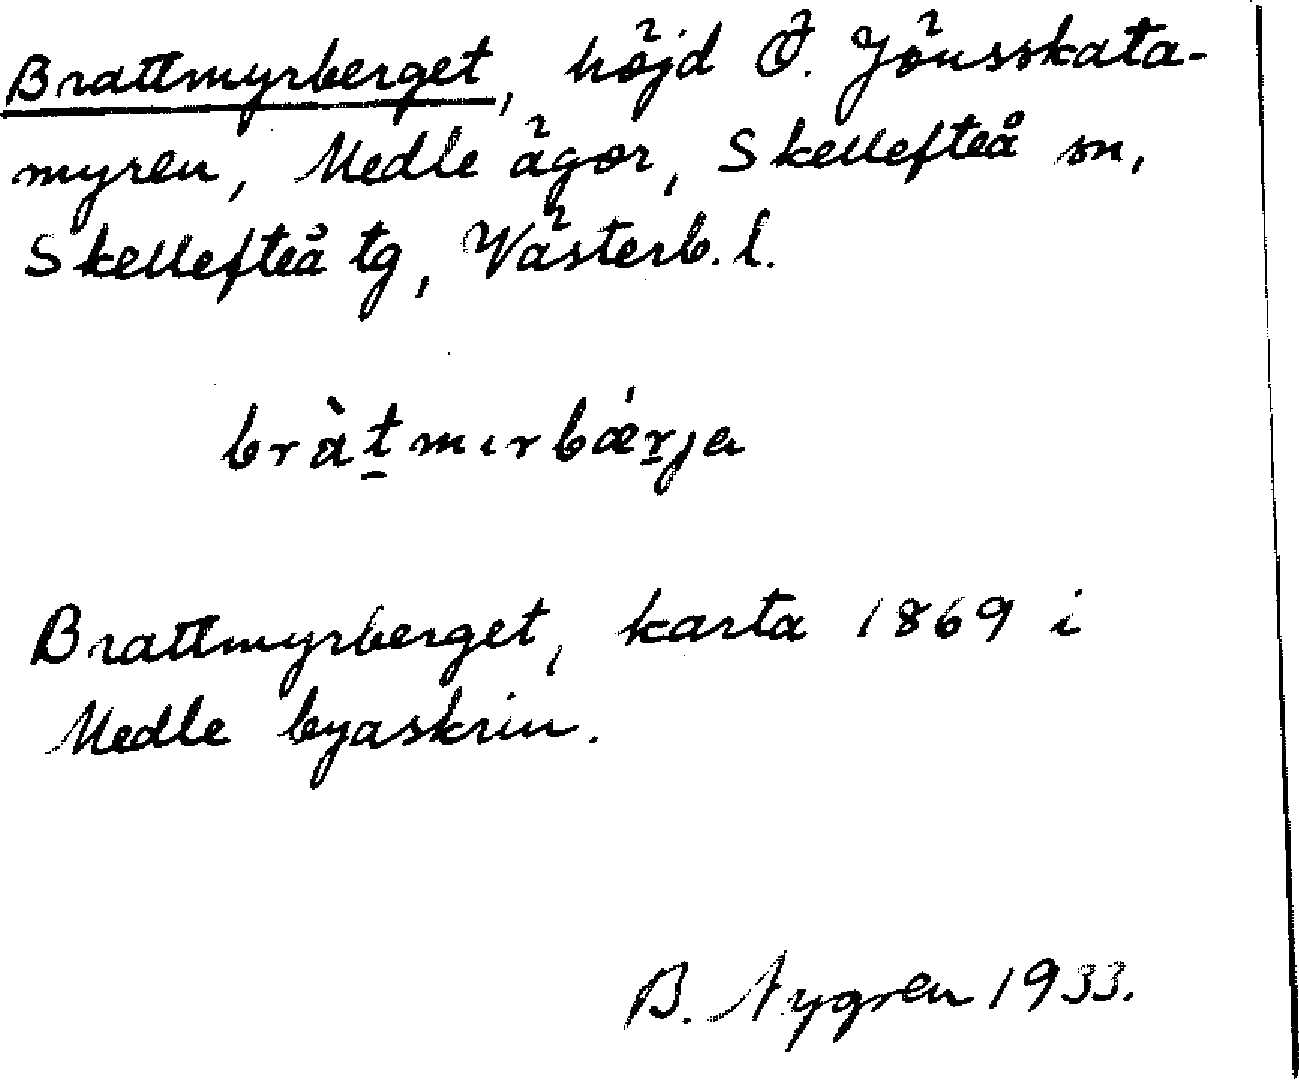 Brattmyrberget, höjd Ö. Jönsskata-
myren, Medle ägor, Skellefteå sn,
Skellefteå tg, Västerb. l.
bràt̲mırbǽr̲ja
Brattmyrberget, karta 1869 i
Medle byaskrin.
B. Nygren 1933.